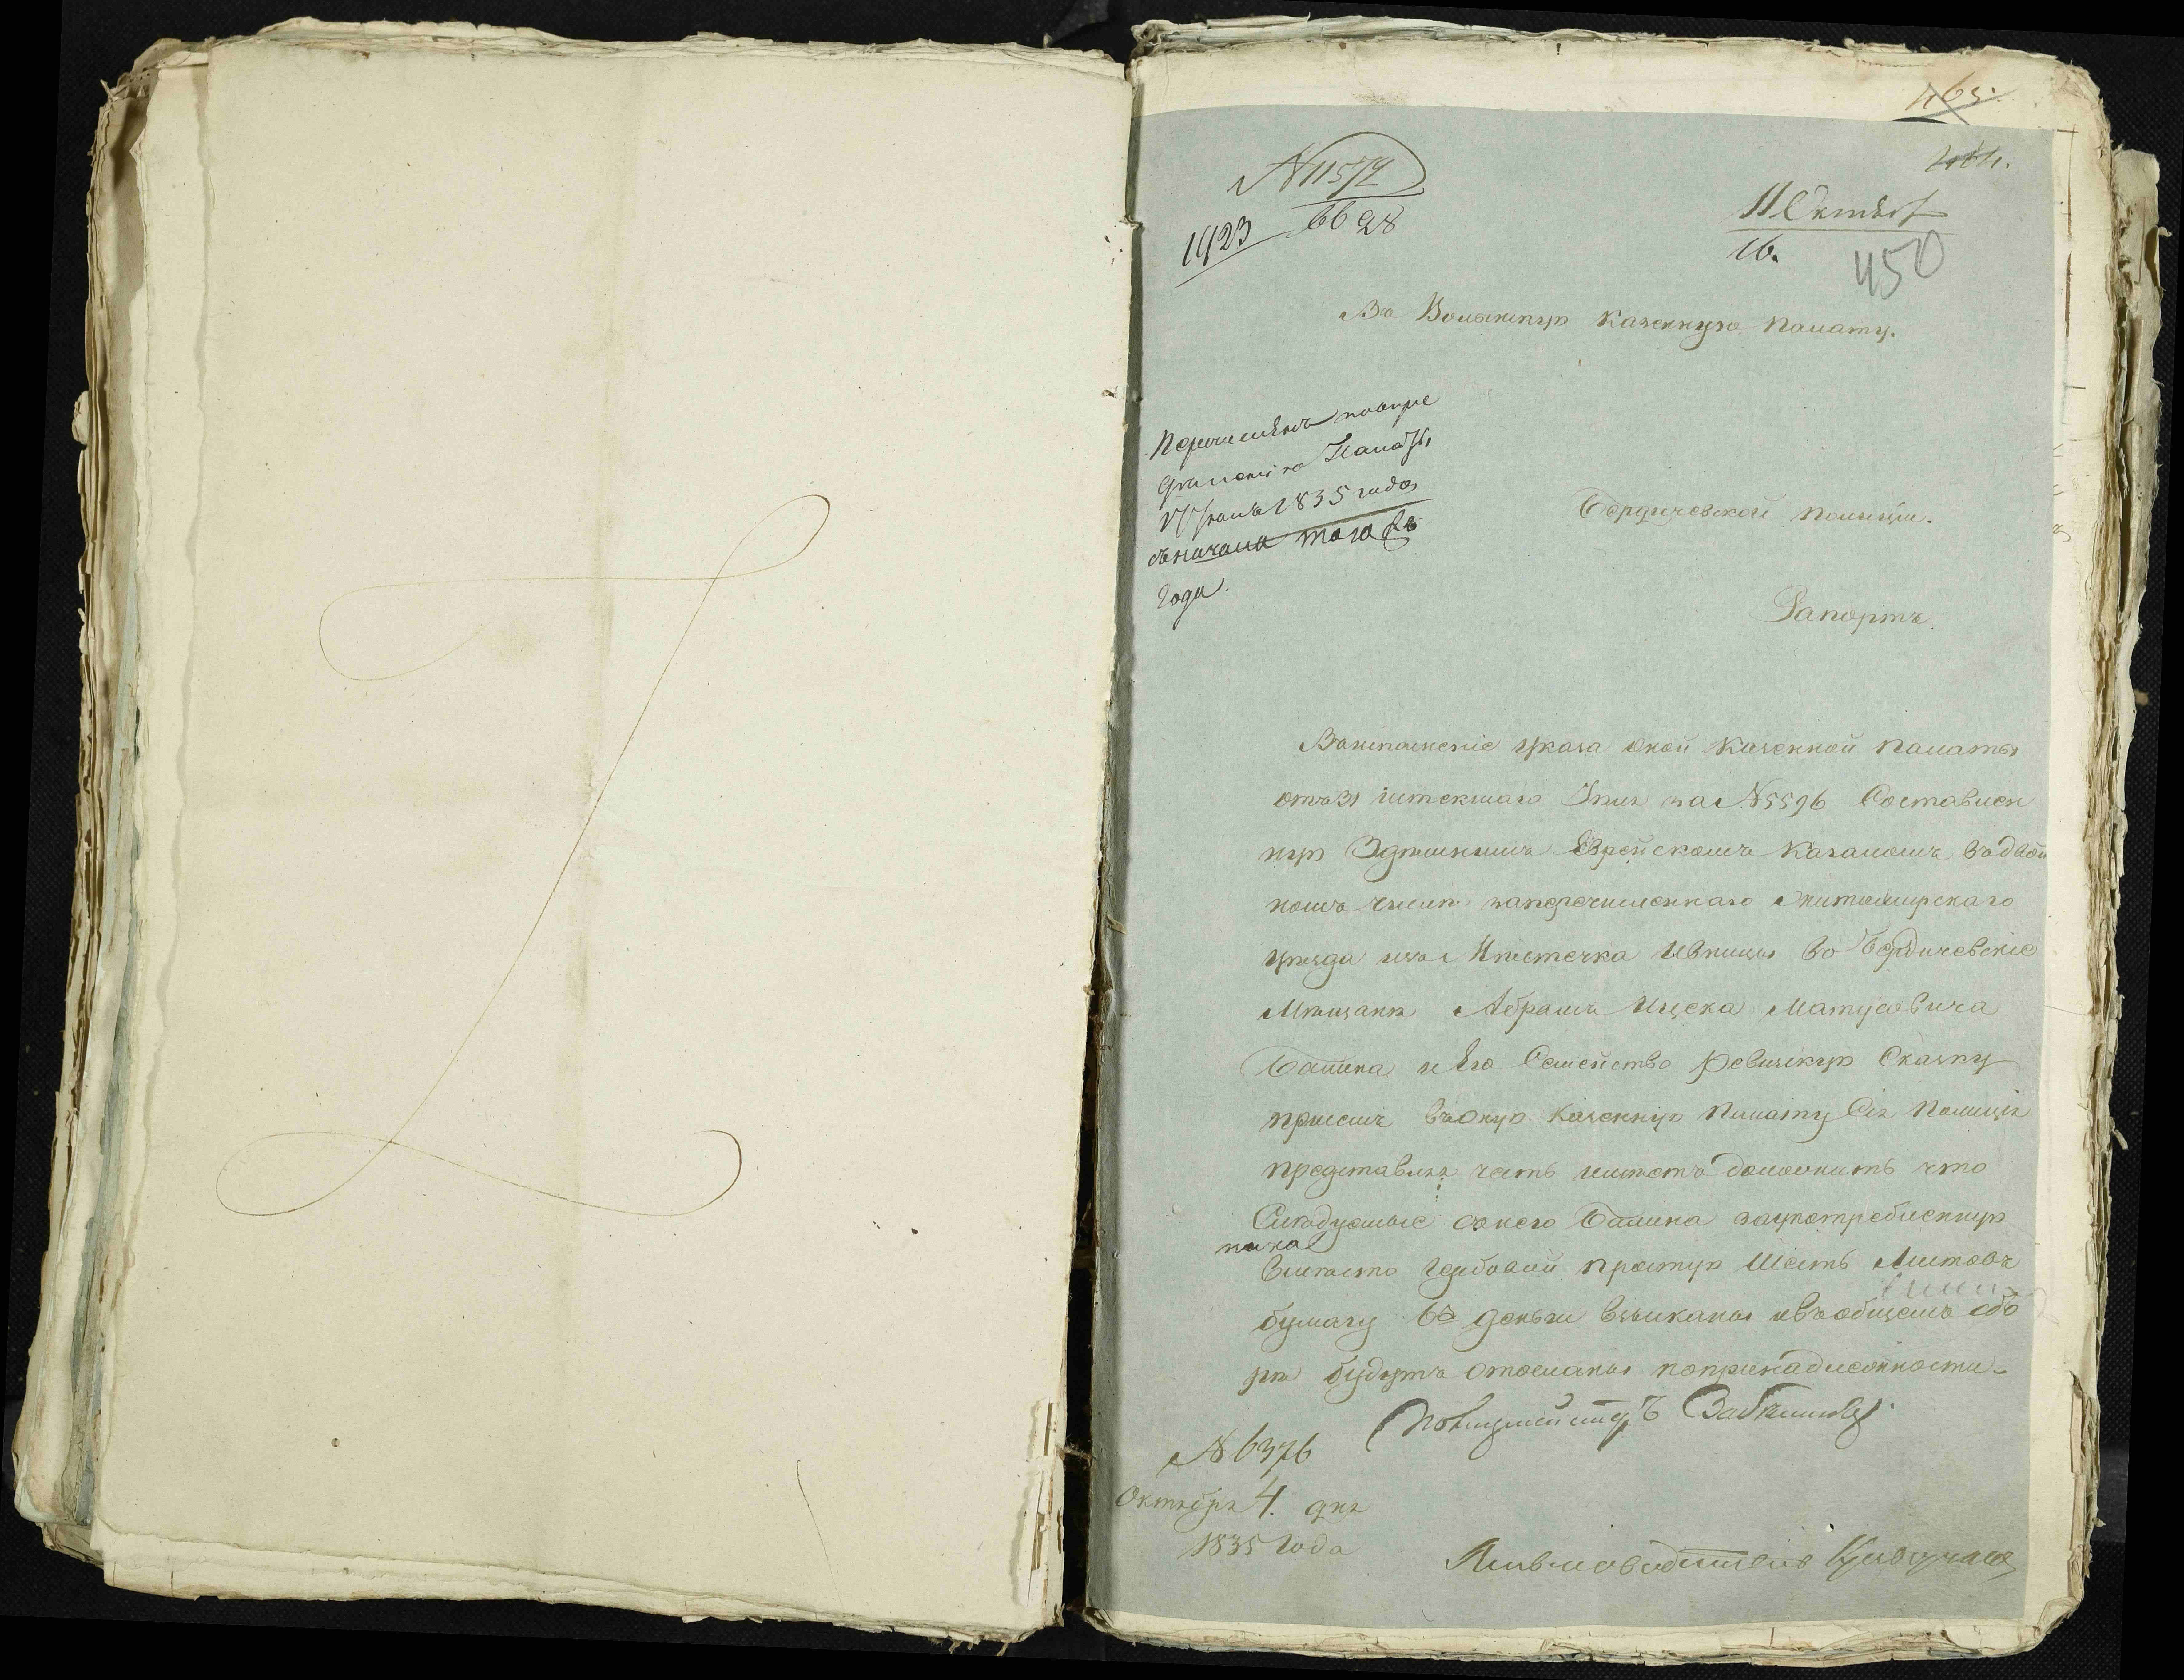 465.
464.
N 11572
6628
1423
11 Октяб
16.
450
Въ Волынскую Казенную Палату.
Перечисленъ
Палаты
1835 года
съ начала того жъ
года.
Бердичевской полиціи.
Рапортъ.
Воисполненіе указа оной Казенной Палаты
отъ 31 истекшаго Іюля за N 5596 Составлен
ную Здѣшнимъ Еврейскимъ Кагаломъ въ двой
номъ числѣ на перечисленнаго Житомирскаго
уѣзда изъ Мѣстечка Ивницы во Бердичевскіе
Мѣщане Абрама Ицска Матусовича
и Его Семейство Ревизскую Сказку
при семъ въ оную Казенную Палату Сія Полиція
представляя честь имѣетъ доложить что
Слѣдуемые съ него за употребленную
вмѣсто гербовой простую Шесть Листовъ
бумагу деньги взысканы и въ общемъ сбо
рѣ будутъ отосланы по принадлежности.
Полицмейстеръ
N 6376
Октября 4. дня
1835 Года
Письмоводитель